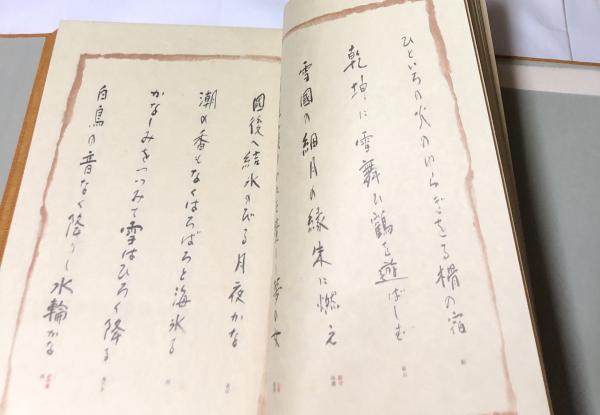 ひといろの火のいらぎをる榾の宿
乾坤に雪舞ひ鶴を遊ばしむ
雪國の細月の縁朱に燃え
夢の女
國後へ結氷のびる月夜かな
潮の香もなくはろばろと海氷る
かなしみをつつみて雪はひろく降る
白鳥の音なく降りし水輪かな